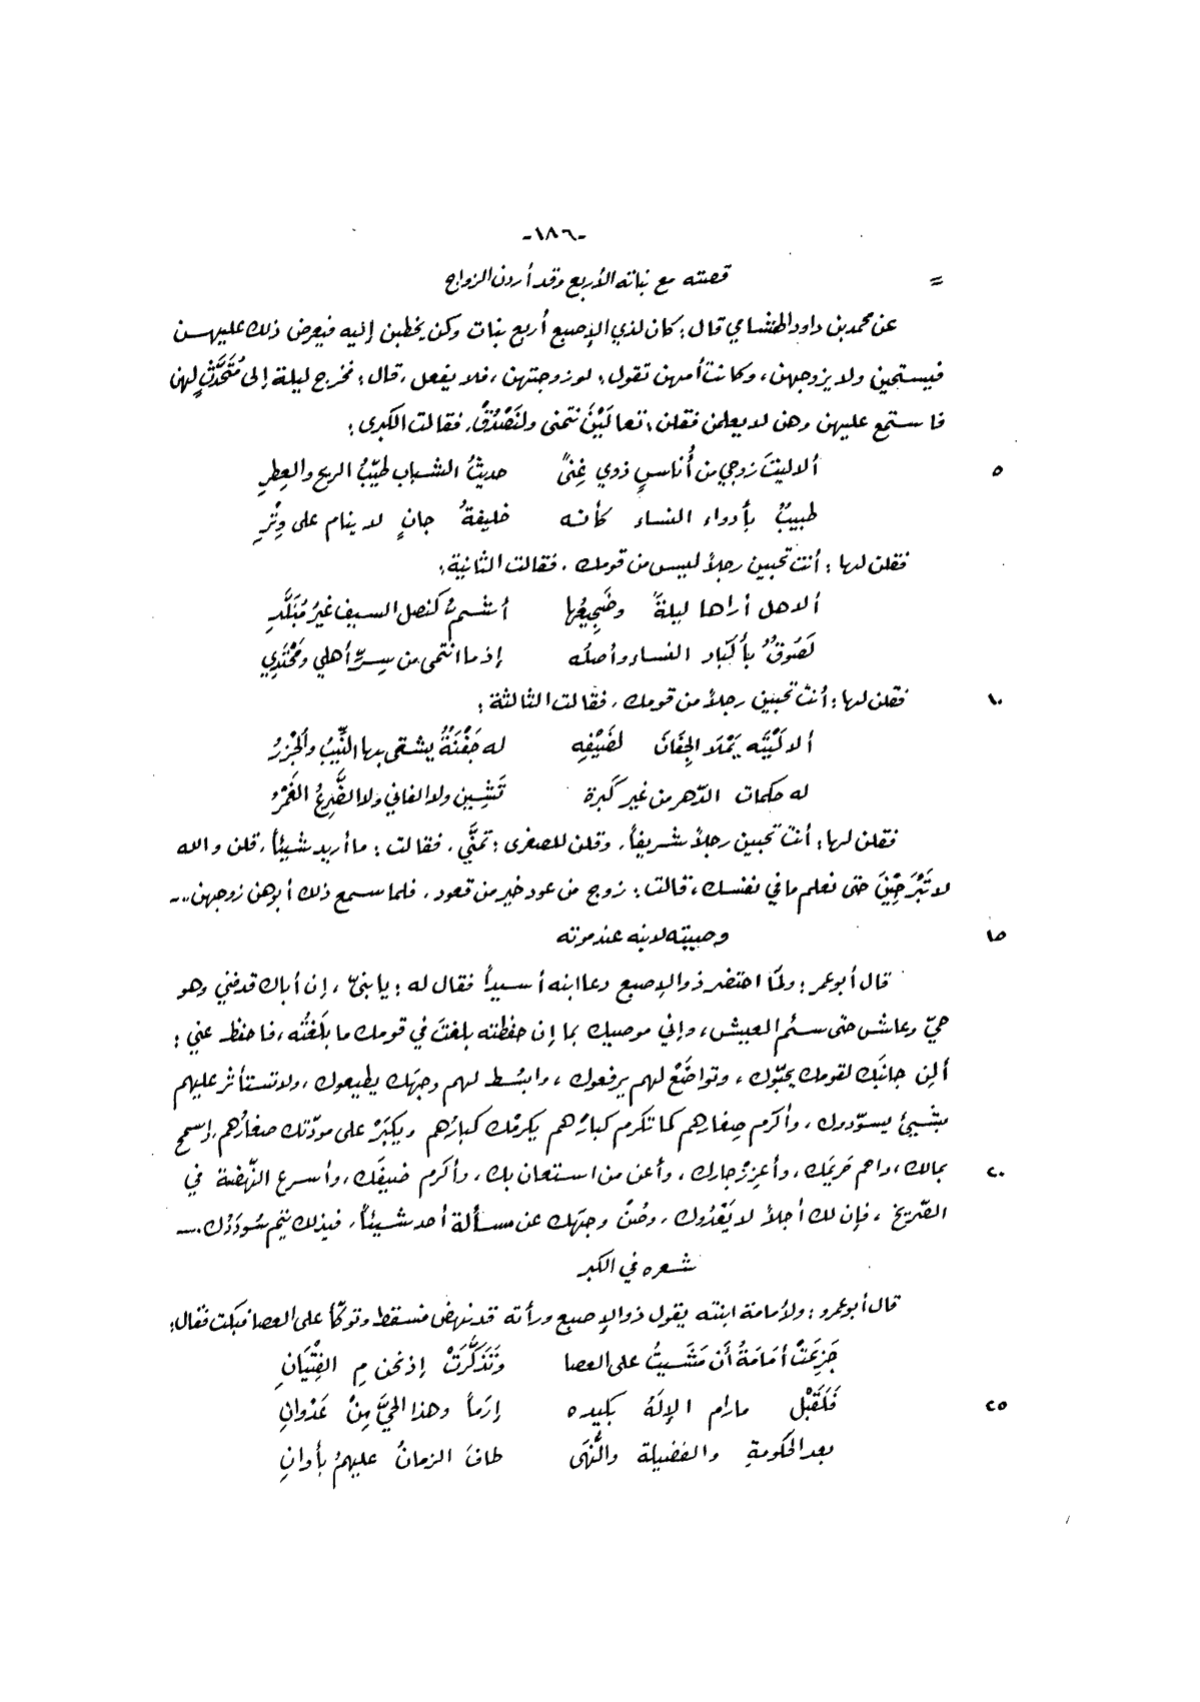 -١٨٦-
= قصته مع بناته الأربع وقد أردن الزواج
عن محمد بن داود الهشامي قال: كان لذي الإصبع أربع بنات وكن يخطبن إليه فيعرض ذلك عليهن
فيستحين ولا يزوجهن، وكانت أمهن تقول: لو زوجتهن، فلا يفعل، قال: فخرج ليلة إلى مُتَحَدَّثٍ لهن
فاستمع عليهن وهن لا يعلمن فقلن: تعالَيْنَ نتمنى ولنَصْدُقْ، فقالت الكبرى:
٥ ألا ليتَ زوجي من أُناسٍ ذوي غِنىً حديثُ الشباب طيّبُ الريح والعِطرِ
طبيبٌ بأدواء النساء كأنه خليفةُ جانٍ لا ينام على وِتْرِ
فقلن لها: أنت تحبين رجلاً ليس من قومك، فقالت الثانية:
ألا هل أراها ليلةً وضَجِيعُها أشمُّ كنصل السيف غيرُ مُبَلَّدِ
لَصُوقٌ بأكْبَاد النساء وأصلُه إذا ما انْتمى من سِرِّ أهلي ومَحْتَدِي
١٠ فقلن لها: أنت تحبين رجلاً من قومك، فقالت الثالثة:
ألا لَيْتَه يَمْلَا الجِفَانَ لضَيْفِهِ له جَفْنَةٌ يشقى بها النِّيبُ والجُزرُ
له حكمات الدّهر من غير كَبرة تَشِين ولا الفاني ولا الضَّرِعُ الغَمْرُ
فقلن لها: أنت تحبين رجلاً شريفاً، وقلن للصغرى: تمنَّي، فقالت: ما أريد شيئاً، قلن والله
لا تَبْرَحِينَ حتى نعلم ما في نفسك، قالت: زوج من عود خير من قعود، فلما سمع ذلك أبوهن زوجهن..
١٥ وصيته لابنه عند موته
قال أبو عمر: ولمّا احتضر ذو الإصبع دعا ابنه أسيداً فقال له: يا بنيّ، إن أباك قد فني وهو
حيّ وعاش حتى سئم العيش، وإني موصيك بما إن حفظته بلغتَ في قومك ما بلَغتُه، فاحفظ عني:
ألِن جانبَك لقومك يحبّوك، وتواضَعْ لهم يرفعوك، وابسُط لهم وجهَك يطيعوك، ولا تستأثر عليهم
بشيئ يسوّدوك، وأكرم صِغارهم كما تكرم كبارَهم يكرمْك كبارُهم ويكبَرْ على مودّتك صغارُهم، اسمح
٢٠ بمالك، واحم حَريمَك، وأعزِزْ جارك، وأعن من استعان بك، وأكرم ضيفَك، وأسرع النّهضة في
الصّريخ، فإن لك أجلاً لا يَعْدُوك، وصُنْ وجهَك عن مسألة أحد شيئاً، فبذلك يتم سُودَدُك.
شعره في الكبر
قال أبو عمرو: ولأمامة ابنته يقول ذو الإصبع ورأته قد نهض فسقط وتوكّأ على العصا فبكت فقال:
جَزِعَتْ أمَامَةُ أن مَشَيتُ على العصا وَتَذَكَّرَتْ إذ نحن مِ الفِتْيَانِ
٢٥ فَلَقَبْل مارام الإلَهُ بكيده إرَماً وهذا الحيَّ مِنْ عَدْوانِ
بعد الحكومةِ والفضيلة والنُّهَى طافَ الزمانُ عليهمُ بأوانِ